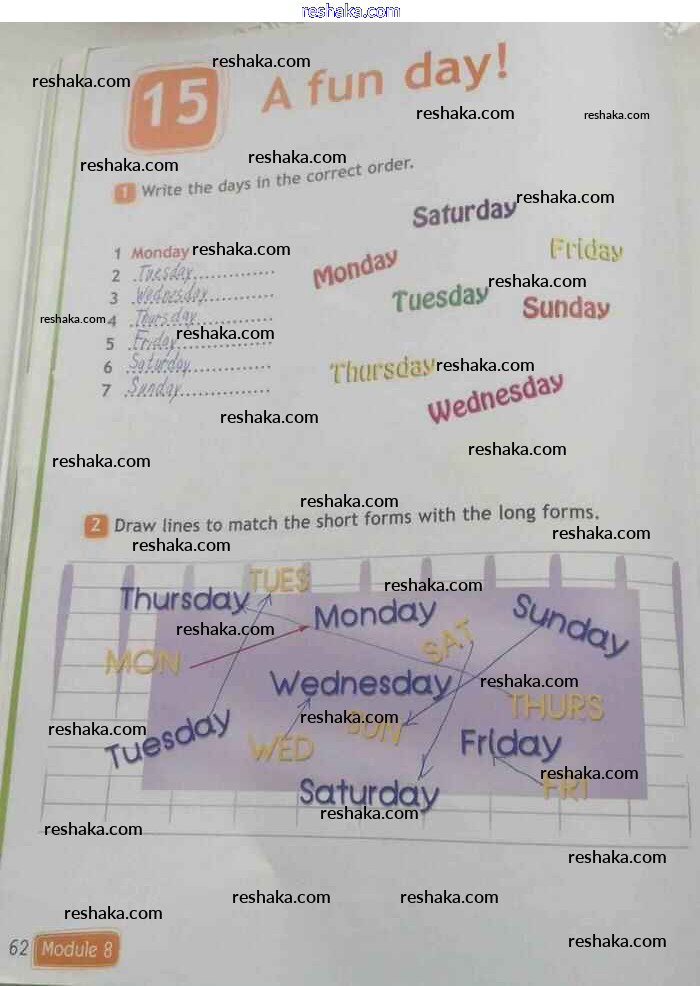 reshaka.com
reshaka.com
reshaka.com
15 A fun day!
reshaka.com
reshaka.com
reshaka.com
reshaka.com
1 Write the days in the correct order.
reshaka.com
Saturday
1 Monday reshaka.com
Friday
Monday
2 Tuesday
reshaka.com
3 Wednesday
Tuesday
Sunday
reshaka.com
4 Thursday
reshaka.com
5 Friday
6 Saturday
Thursday reshaka.com
7 Sunday
Wednesday
reshaka.com
reshaka.com
reshaka.com
reshaka.com
2 Draw lines to match the short forms with the long forms.
reshaka.com
reshaka.com
TUES
reshaka.com
Thursday
Monday
Sunday
reshaka.com
SAT
MON
Wednesday
reshaka.com
THURS
reshaka.com
SUN
reshaka.com
Tuesday
WED
Friday
reshaka.com
FRI
Saturday
reshaka.com
reshaka.com
reshaka.com
reshaka.com
reshaka.com
reshaka.com
62 Module 8
reshaka.com